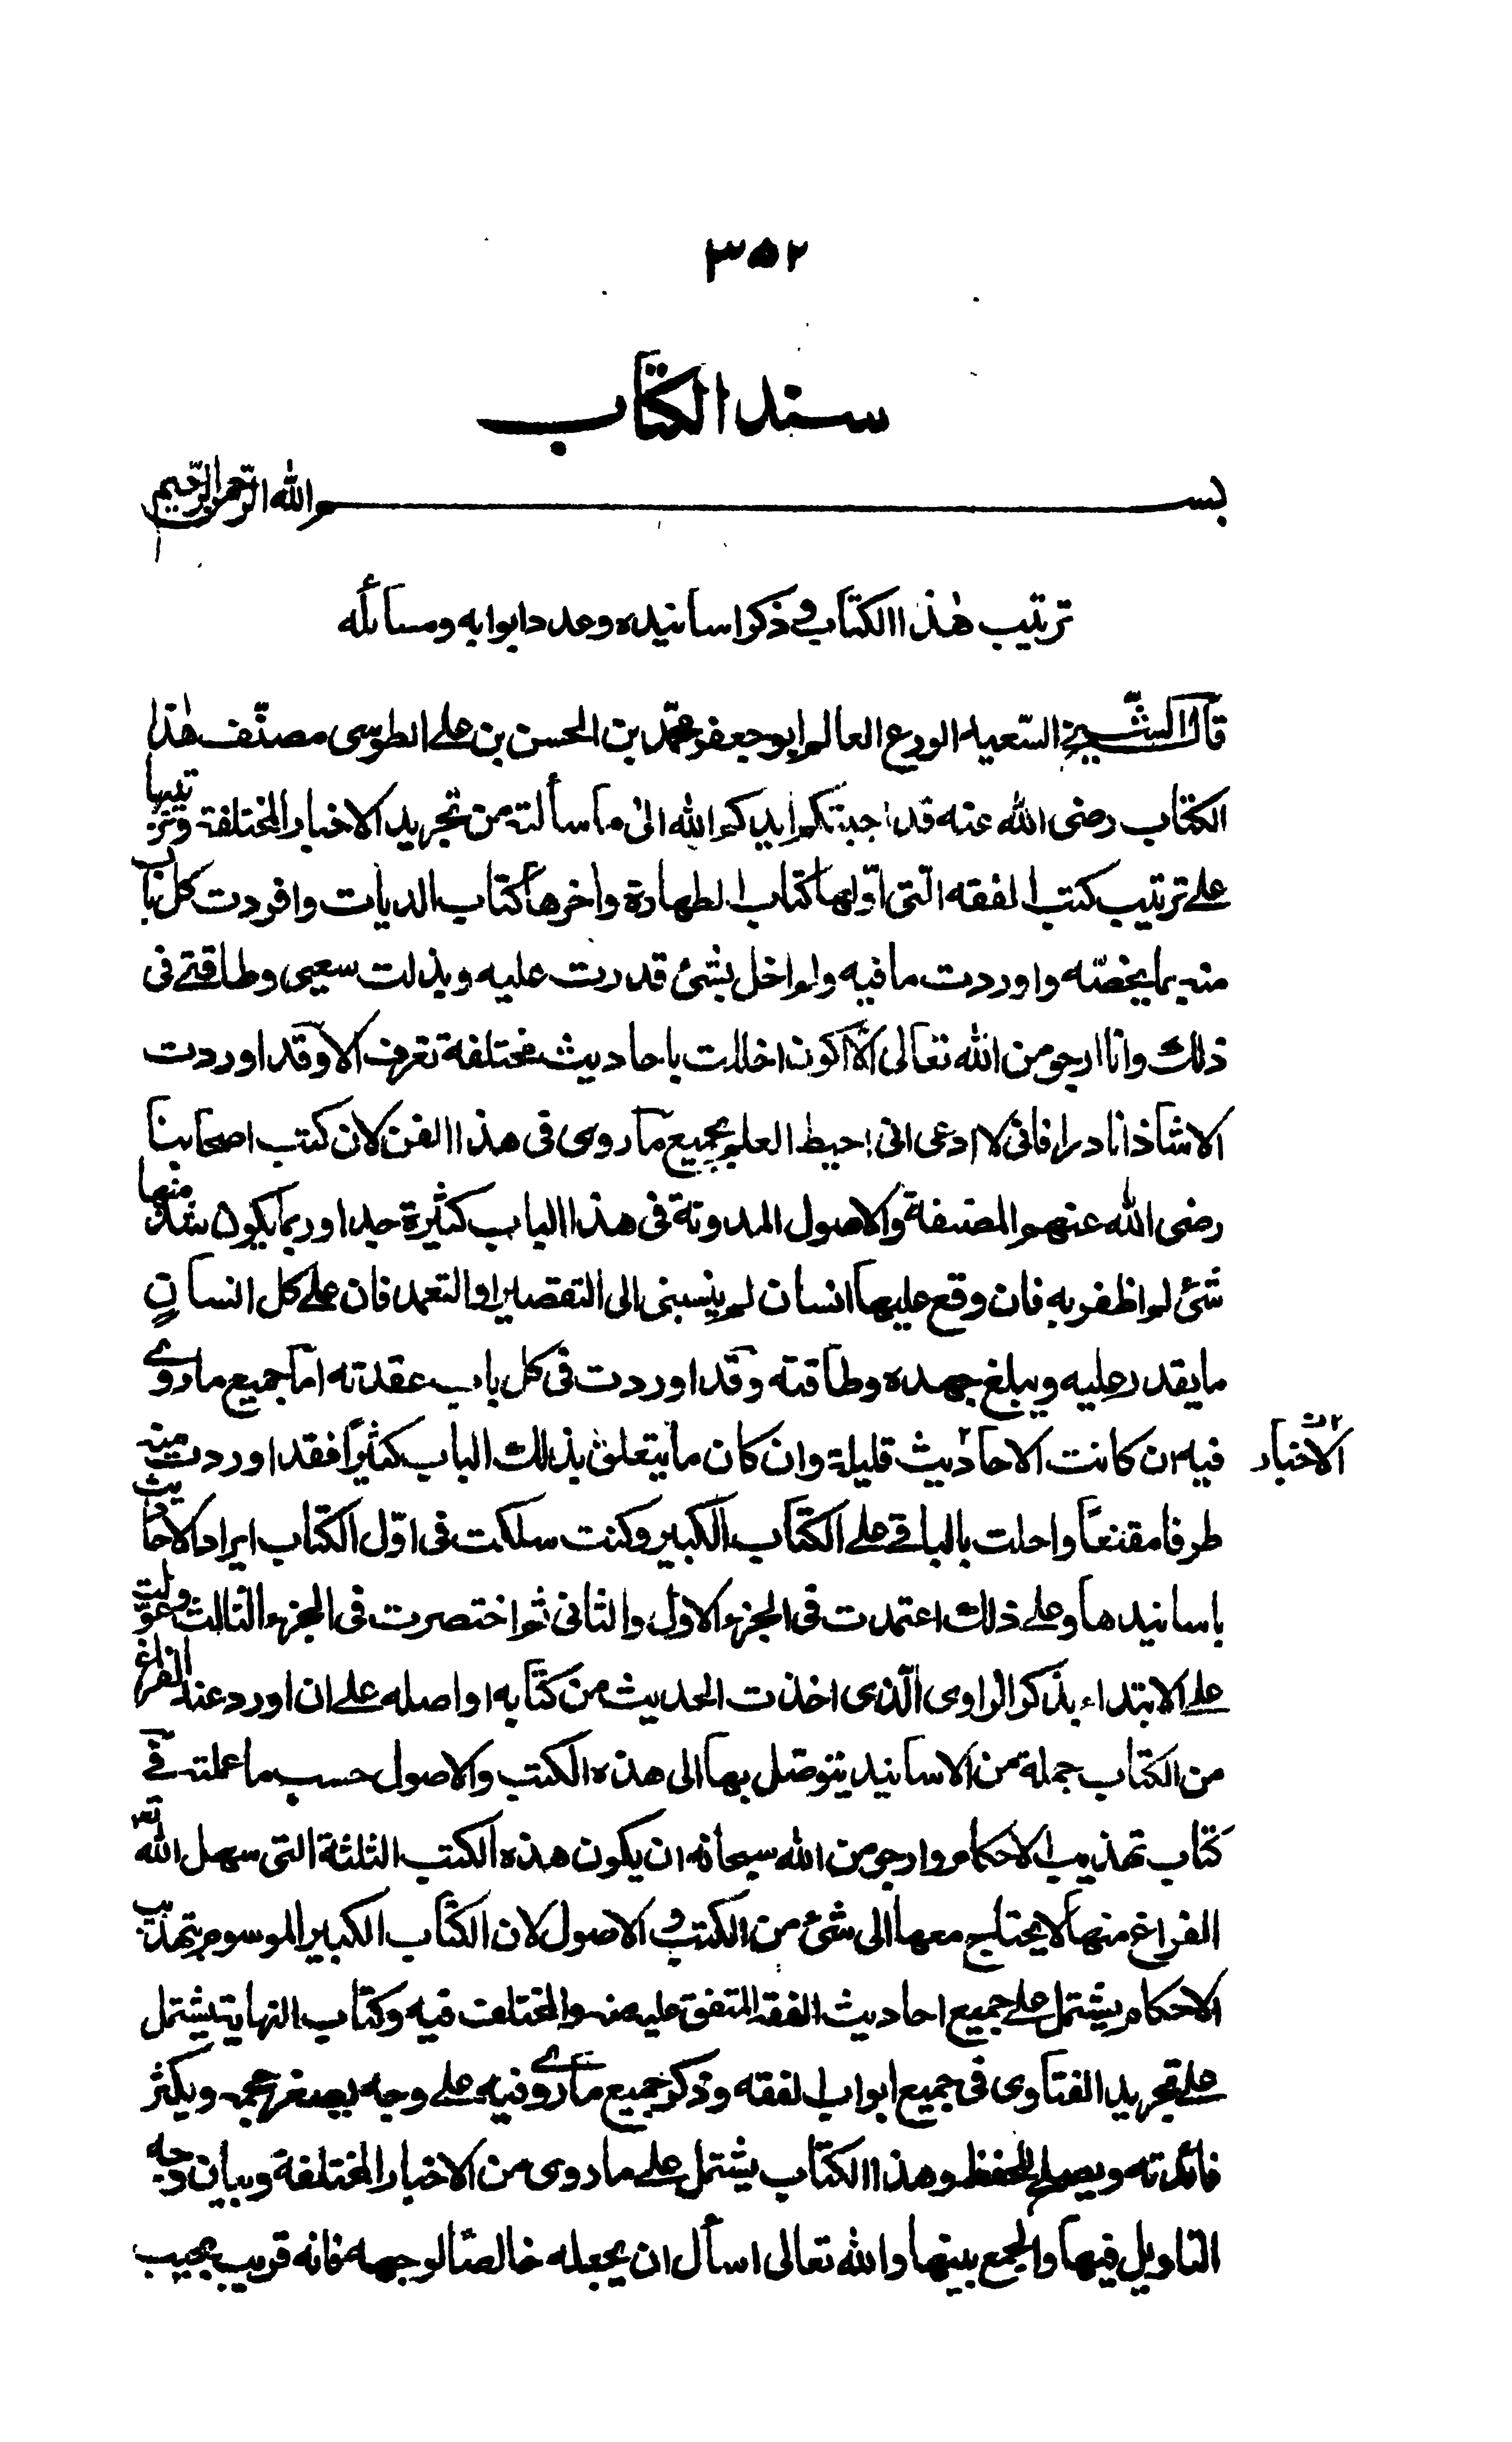 ٣٥٢
سند الكتاب
بسم الله الرحمن الرحيم
ترتيب هٰذا الكتاب و ذكر اسانيده وعدد ابوابه ومسائله
قال الشيخ السّعيد الورع العالم ابو جعفر محمّد بن الحسن بن على الطوسى مصنّف هٰذا
الكتاب رضى الله عنه قد اجبتكم ايدكم الله الىٰ ما سألتم من تجريد الاخبار المختلفة وترتيبها
على ترتيب كتب الفقه الّتى اوّلها كتاب الطهارة واخرها كتاب الديات وافردت كل باب
منه بما يخصّه واوردت ما فيه ولم اخل بشئ قدرت عليه وبذلت سعيى وطاقتى فى
ذلك وانا ارجو من الله تعالى الّا اكون اخللت باحاديث مختلفة تعرف الا وقد اوردت
الا شاذا نادرا فانى لا ادعى انى احيط العلم بجميع ما روى فى هذا الفن لان كتب اصحابنا
رضى الله عنهم المصنفة والاصول المدونة فى هذا الباب كثيرة جدا وربما يكون شذ منها
شئ لم اظفر به فان وقع عليها انسان لم ينسبنى الى التقصير او التعمد فان على كل انسانٍ
ما يقدر عليه ويبلغ جهده وطاقته وقد اوردت فى كل باب عقدته اما جميع ما روى
فيه ان كانت الاحاديث قليلة وان كان ما يتعلق بذلك الباب كثيرًا فقد اوردت منه
الاخبار
طرفا مقنعا واحلت بالباقى على الكتاب الكبير وكنت سلكت فى اوّل الكتاب ايراد الاحاديث
باسانيدها وعلى ذلك اعتمدت فى الجزء الاول والثانى ثم اختصرت فى الجزء الثالث وعوّلت
على الابتداء بذكر الراوى الّذى اخذت الحديث من كتابه او اصله على ان اورد عند الفراغ
من الكتاب جملة من الاسانيد يتوصّل بها الى هذه الكتب والاصول حسب ما عملته فى
كتاب تهذيب الاحكام وارجو من الله سبحانه ان يكون هذه الكتب الثلثة التى سهل الله تع
الفراغ منها لا يحتاج معها الى شئ من الكتب و الاصول لان الكتاب الكبير الموسوم بتهذيب
الاحكام يشتمل على جميع احاديث الفقه المتفق عليه منه والمختلف فيه وكتاب النهاية يشتمل
على تجريد الفتاوى فى جميع ابواب الفقه وذكر جميع ما روى فيه على وجه يصغر حجمه ويكثر
فائدته ويصلح للحفظ وهذا الكتاب يشتمل على ما روى من الاخبار المختلفة وبيان وجه
التاويل فيها والجمع بينها والله تعالى اسأل ان يجعله خالصًا لوجهه فانه قريب مجيب